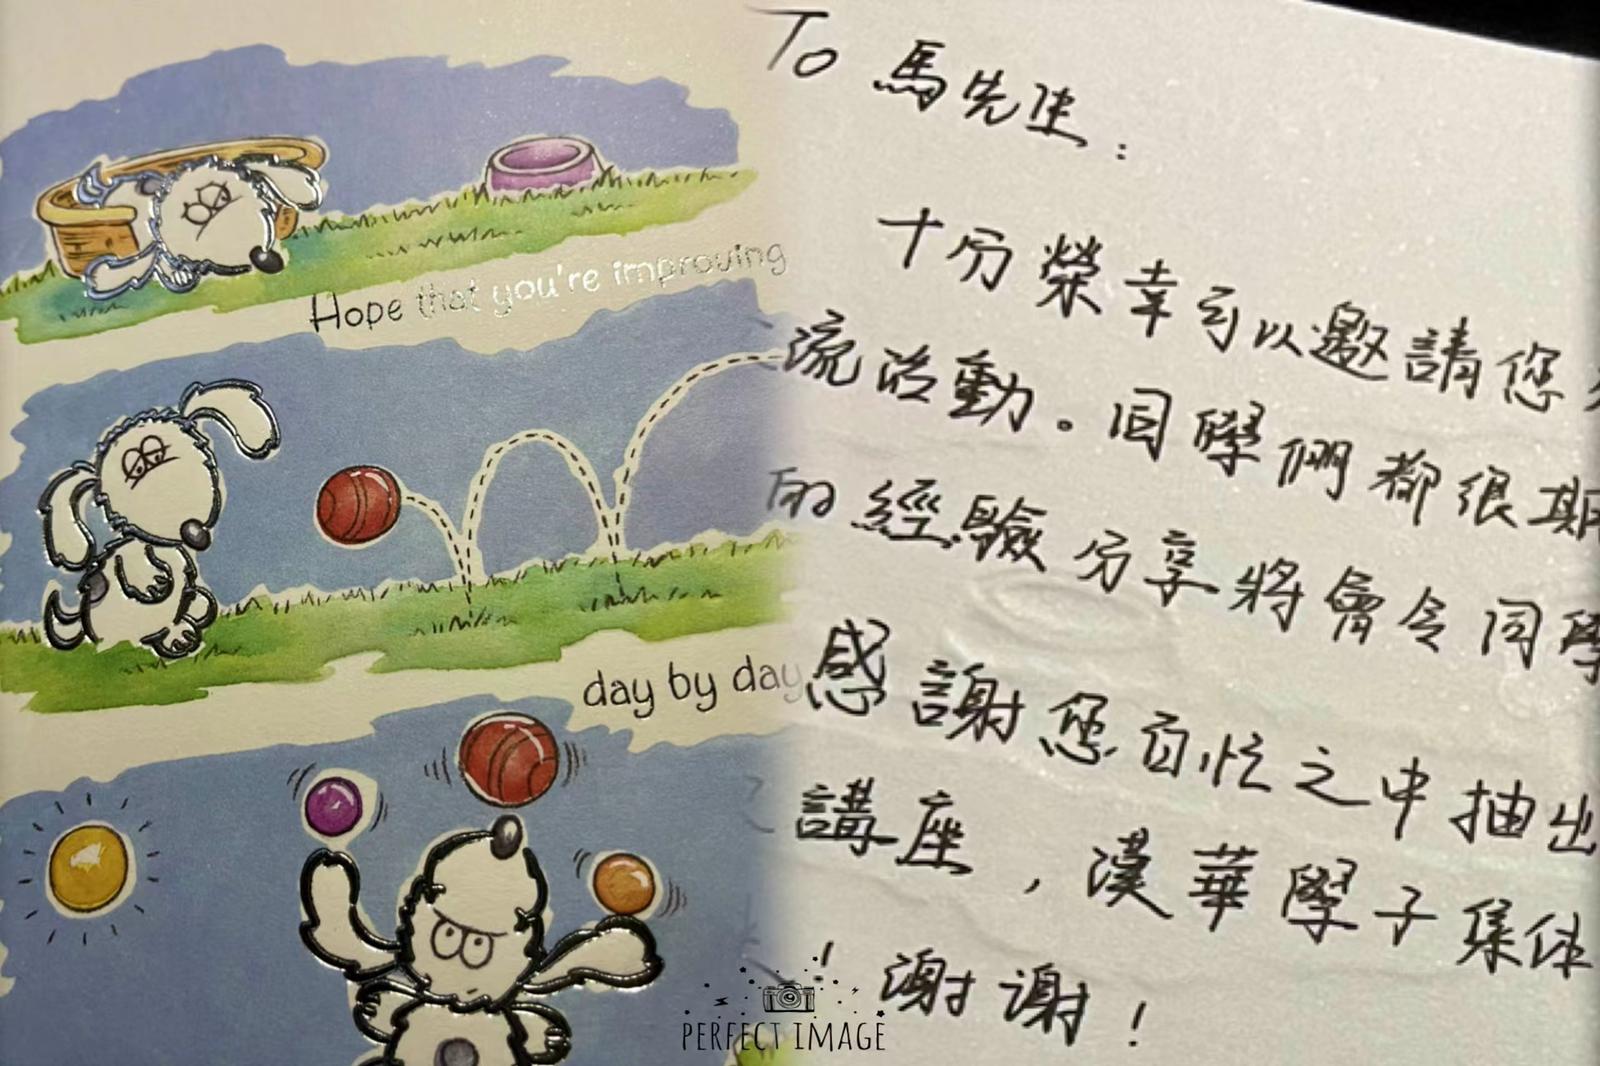 Hope that you're improving
day by day
To 馬先生：
十分榮幸可以邀請您
流活動。同學們都很期
的經驗分享將會令同學
感謝您百忙之中抽出
講座，漢華學子集体
！謝謝！
PERFECT IMAGE